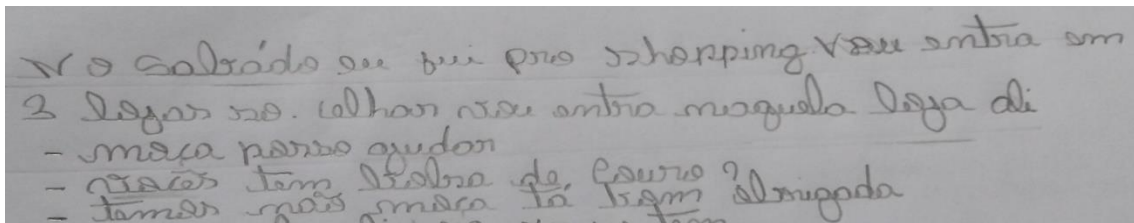 No Sabádo eu fui pro shopping vou entra em
3 logar so. olhar vou entra naquela loja ali
- moça posso ajudar
- vocês tem bolsa de couro?
- temos mais moça ta bom obrigada